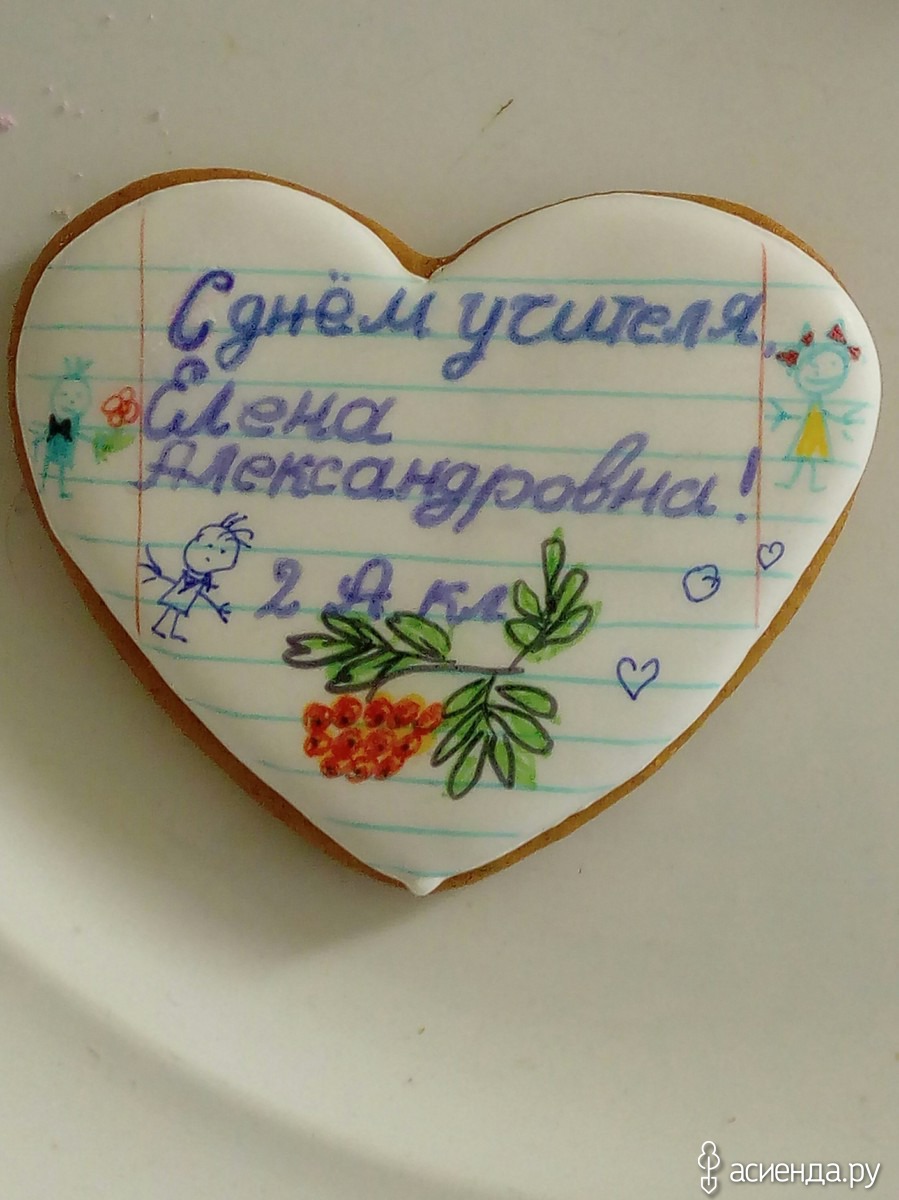 С днём учителя,
Елена
Александровна!
2 А кл
асиенда.ру